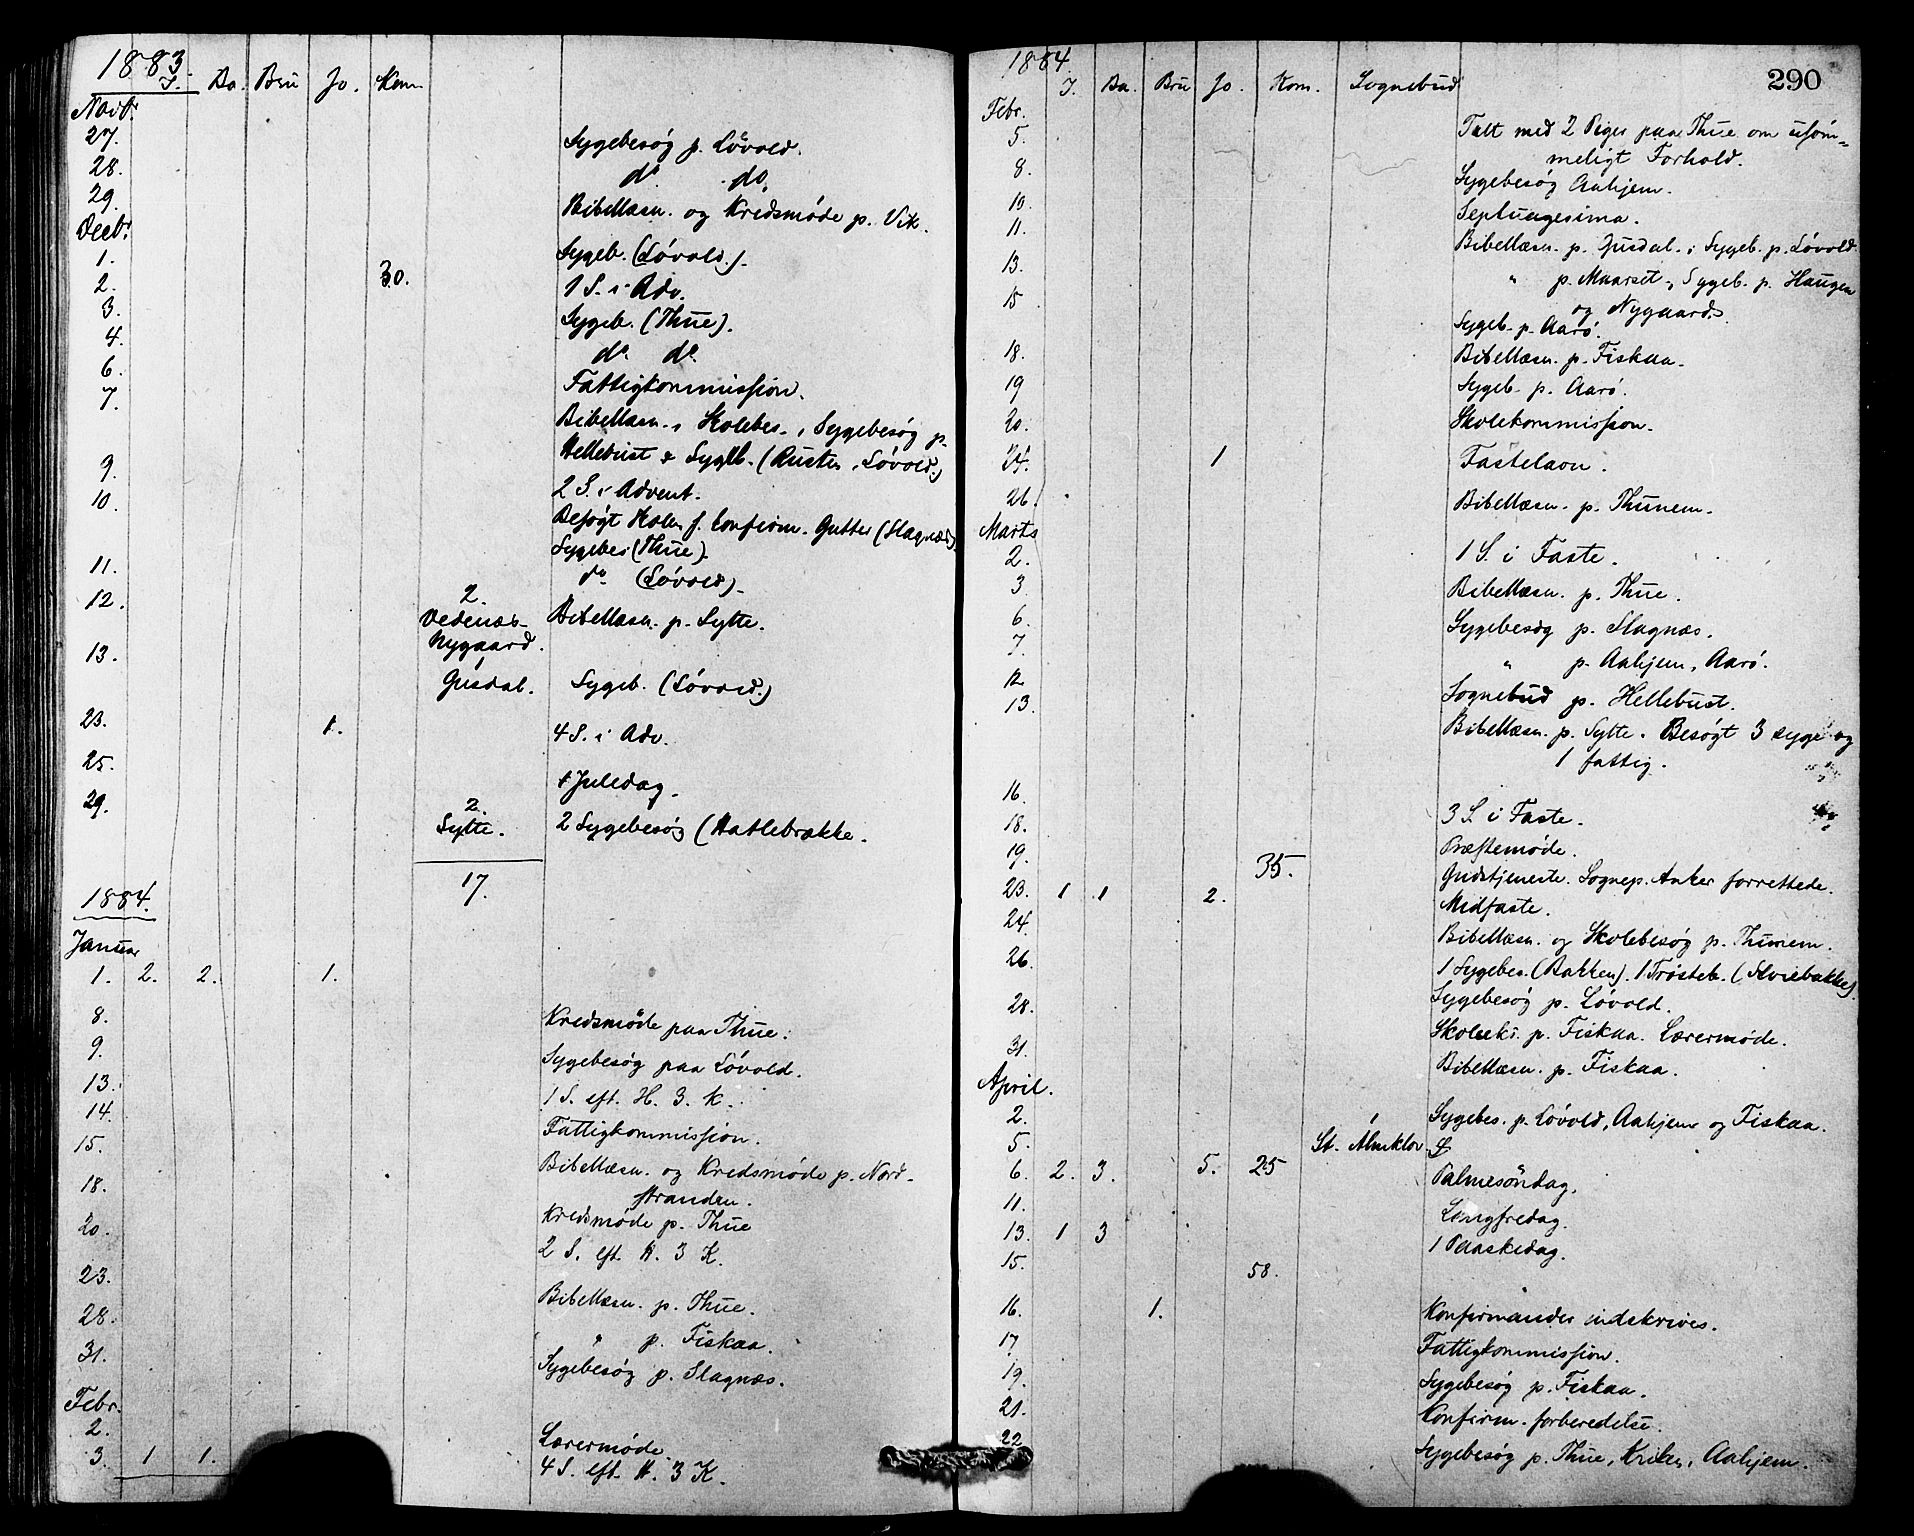 1883.
I. Da. Bru Jo. Kom
Novbr.
27. Sygebesög p. Lövold.
28. do. do.
29. Bibellæsn. og Kredsmöde p. Vik.
Decbr.
1. Sygeb. (Lövold.).
2. 30. 1 S. i Adv.
3. Sygeb. (Thue).
4. do. do.
6. Fattigkommission.
7. Bibellæsn., Skolebes., Sygebesög p.
Hellebust & Sygeb. (Rusten, Lövold.)
9. 2 S. i Advent.
10. Besögt Skolen f. Confirm. Gutter (Slagnæs).
Sygebes (Thue).
11. do. (Lövold).
12. 2. Vedenæs- Bibellæsn. p. Sytte.
Nygaard.
13. Gusdal. Sygeb. (Lövold.)
23. 1. 4 S. i Adv.
25. 1 Juledag.
29. 2. Sytte. 2 Sygebesög (Hatlebrække.
17.
1884.
Januar
1. 2. 2. 1.
8. Kredsmöde paa Thue.
9. Sygebesög paa Lövold.
13. 1 S. eft. H. 3. K.
14. Fattigkommission.
15. Bibellæsn. og Kredsmöde p. Nord-
stranden.
18. Kredsmöde p. Thue
20. 2 S. eft. H. 3 K.
23. Bibellæsn. p. Thue.
28. " p. Fiskaa.
31. Sygebesög p. Slagnæs.
Febr.
2. Lærermöde
3. 1 1. 4 S. eft. H. 3 K.
1884
290
I. Da. Bru Jo. Kom. Sognebud
Febr.
5. Talt med 2 Piger paa Thue om usöm-
meligt Forhold.
8. Sygebesög Aahjem.
10. Septuagesima.
11. Bibellæsn. p. Gusdal. Sygeb. p. Lövold
13. " p. Maarset, Sygeb. p. Haugen
og Nygaard.
15 Sygeb. p. Aarö.
18. Bibellæsn. p. Fiskaa.
19 Sygeb. p. Aarö.
20. Skolekommission.
24. 1 Fastelavn.
26. Bibellæsn. p. Thunem.
Marts
2. 1 S. i Faste.
3 Bibellæsn. p. Thue.
6. Sygebesøg p. Slagnæs.
7. " p. Aahjem, Aarö.
12 Sognebud p. Hellebust.
13. Bibellæsn. p. Sytte. Besögt 3 syge og
1 fattig.
16. 3 S. i Faste.
18. Præstemöde.
19. 35. Gudstjeneste. Sognep. Anker forrettede.
23. 1 1 2. Midfaste.
24. Bibellæsn. og Skolebesög p. Thunem.
26. 1 Sygebes. (Bakken). 1 Tröstebr. (Skriebakke).
Sygebesög p. Lövold.
28. Skoleeks. p. Fiskaa. Lærermöde.
31. Bibellæsn. p. Fiskaa.
April.
2. Sygebes. p. Lövold, Aahjem og Fiskaa.
5. 1 St. Almklov
6. 2. 3. 5. 25 Palmesöndag.
11. Langfredag.
13. 1 3 1 Paaskedag.
15. 58.
16. 1. Konfirmander indskrives.
17. Fattigkommission.
19. Sygebesög p. Fiskaa.
21. Konfirm. forberedelse.
22 Sygebesög p. Thue, Kriken, Aahjem.